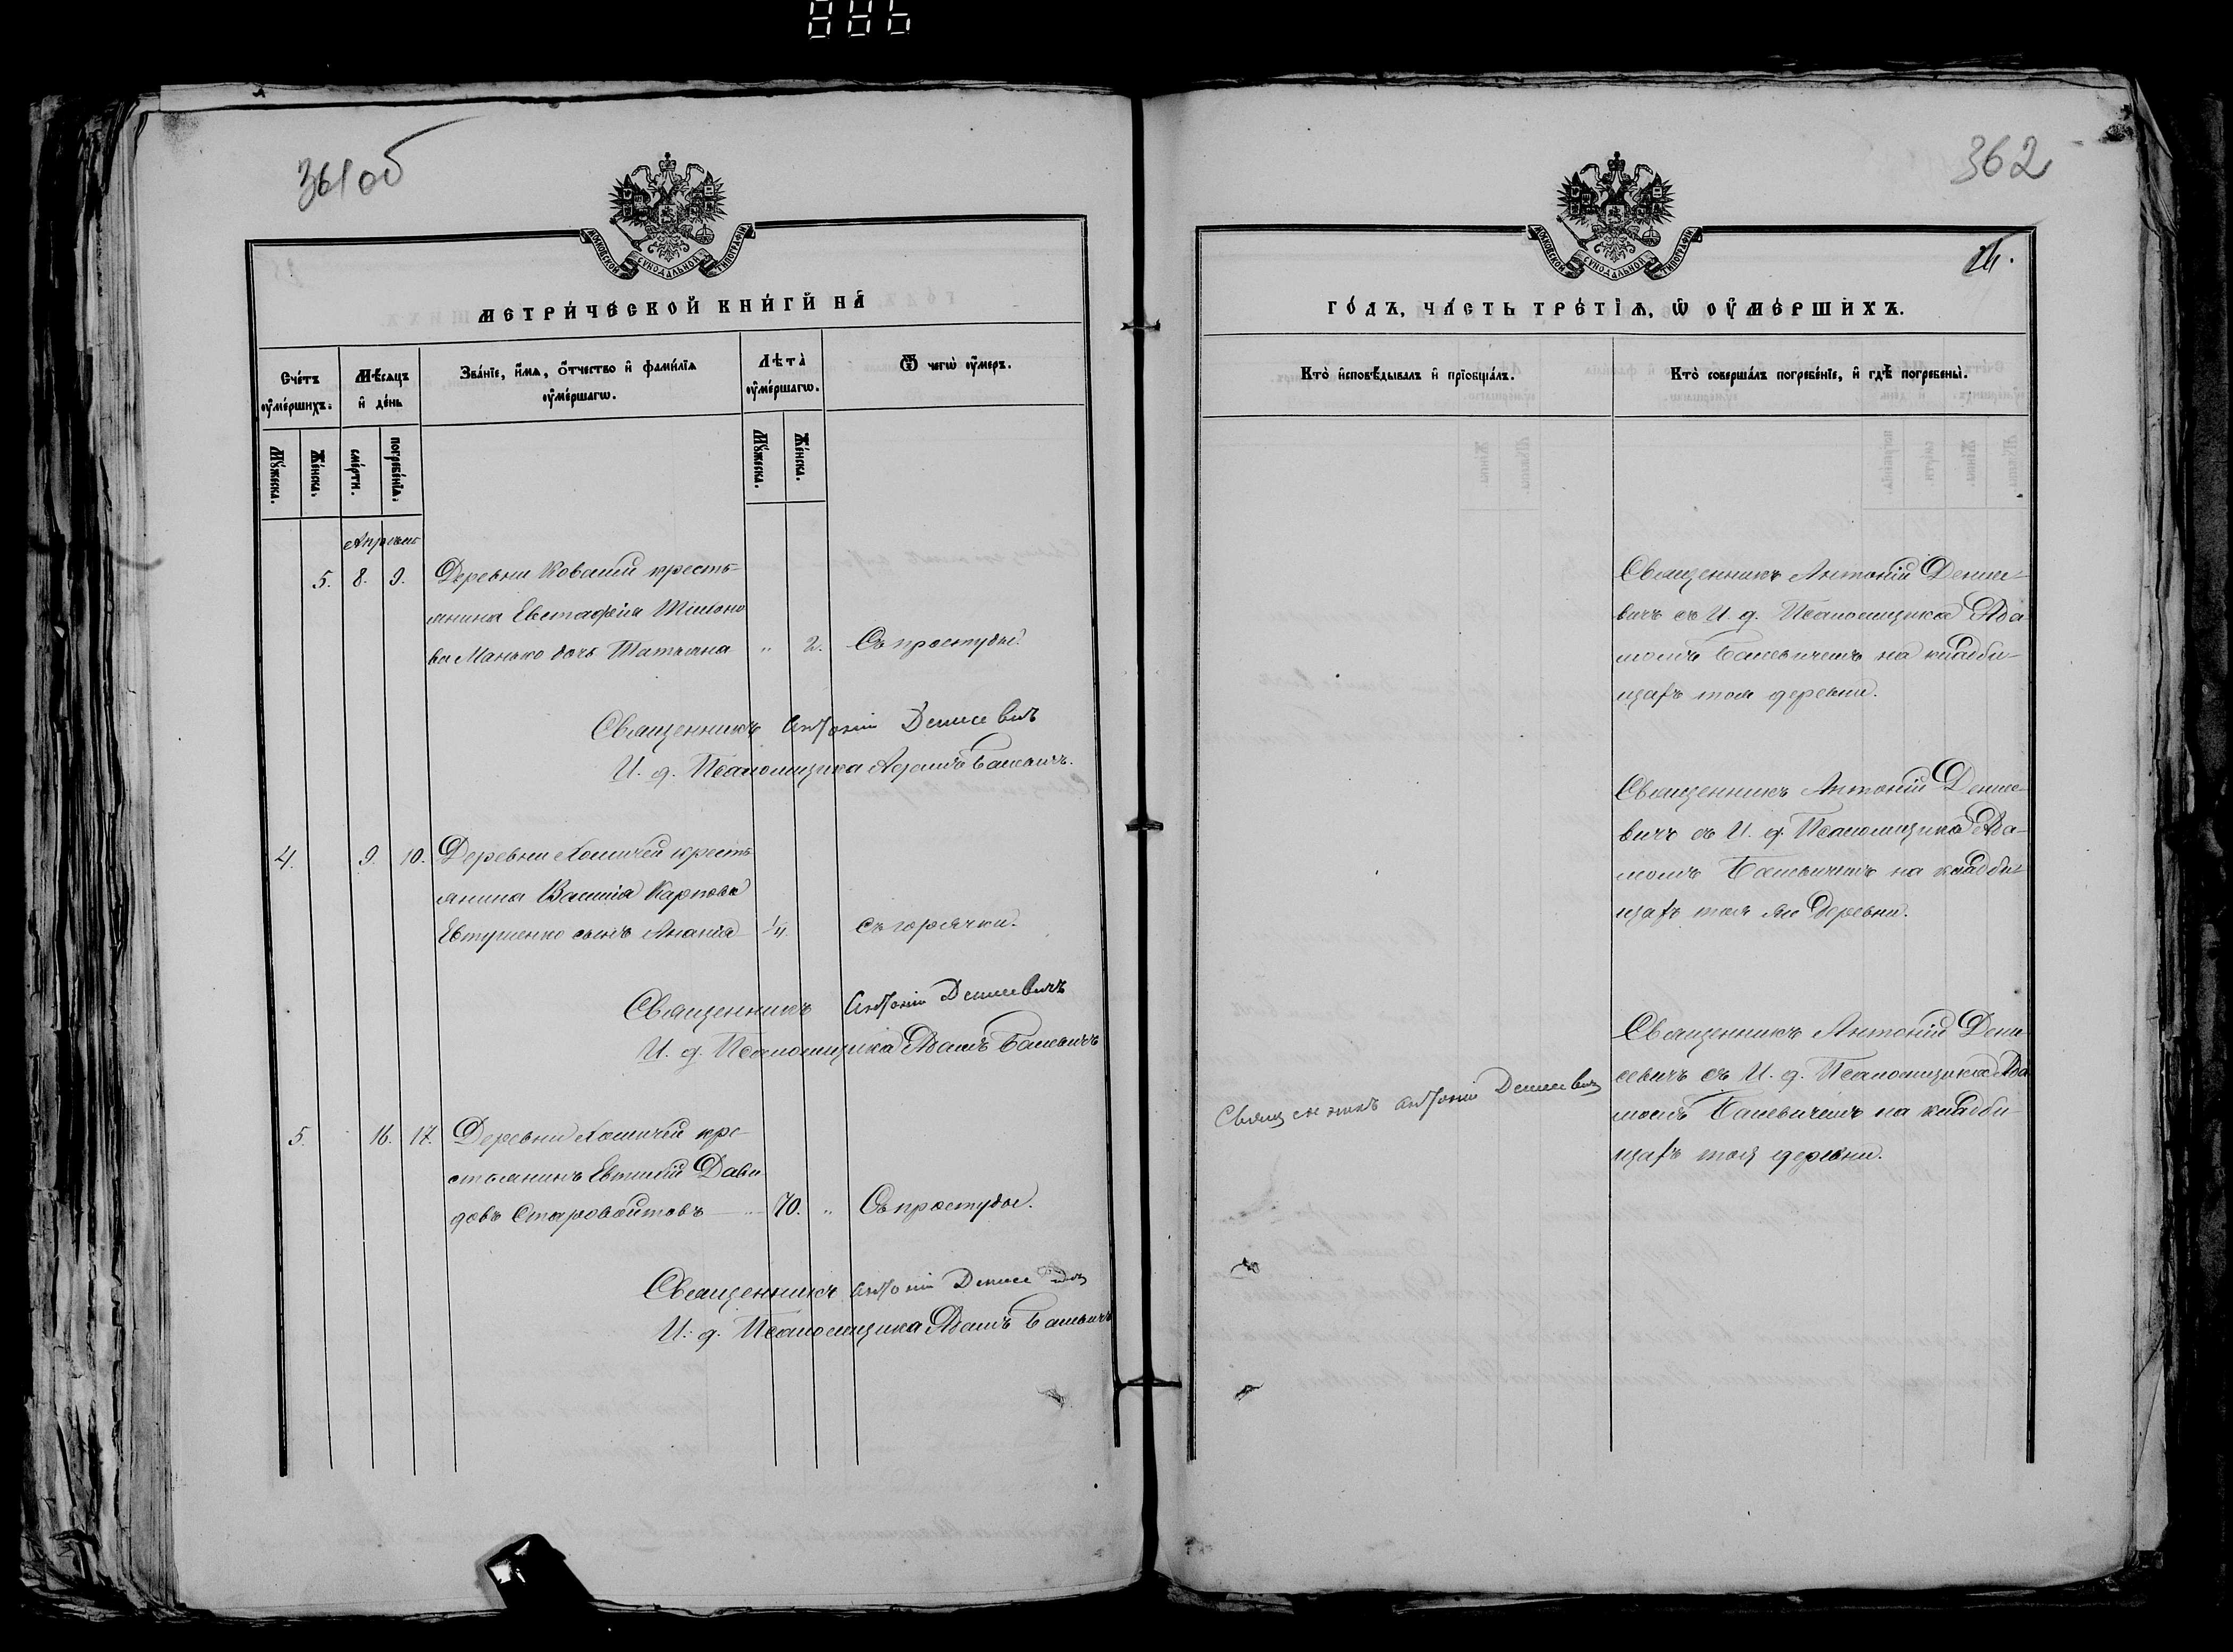 361об
МОСКОВСКОЙ СѴНОДАЛЬНОЙ ТИПОГРАФІИ
МЕТРИ́ЧЕСКОЙ КНИ́ГИ НА̀
Сче́тъ ѹ҆ме́ршихъ.
Мѣ́сяцъ и҆ де́нь
Зва́нїе, и҆́мѧ, ѻ҆́тчество и҆ фами́лїѧ ѹ҆ме́ршагѡ.
Лѣта̀ ѹ҆ме́ршагѡ.
Ѿ чегѡ̀ ѹ҆́меръ.
Мꙋ́жеска.
Же́нска.
сме́рти.
погребе́нїѧ.
Мꙋ́жеска.
Же́нска.
Апрель
5. 8. 9. Деревни Ковалей кресть-
янина Евстафія
ва Манько дочь Татьяна " 2. Съ простуды.
Священникъ Антоній Денисевичъ
И. д. Псаломщика Адамъ Баневичъ.
4. 9. 10. Деревни Хомичей кресть
янина Василія Карпова
Евтушенко сынъ Ананія 1/4. Съ горячки.
Священникъ Антоній Денисевичъ
И. д. Псаломщика Адамъ Баневичъ
5. 16. 17. Деревни Хомичей кре-
стьянинъ Евтихій Дави
довъ Старовойтовъ 70. " Съ простуды.
Священникъ Антоній Денисевичъ
И. д. Псаломщика Адамъ Баневичъ
362
МОСКОВСКОЙ СѴНОДАЛЬНОЙ ТИПОГРАФІИ
ГО́ДЪ, ЧА́СТЬ ТРЕ́ТЇѦ, Ѡ҆ ОУ҆МЕ́РШИХЪ.
Кто̀ и҆сповѣ́дывалъ и҆ прїѡбща́лъ.
Кто̀ соверша́лъ погребе́нїе, и҆ гдѣ̀ погребены̀.
Священникъ Антоній Денисе-
вичъ съ И. д. Псаломщика Ада-
момъ Баневичемъ на кладби-
щахъ тоя деревни.
Священникъ Антоній Денисе-
вичъ съ И. д. Псаломщика Ада-
момъ Баневичемъ на кладби-
щахъ тоя же деревни.
Священникъ Антоній Денисевичъ
Священникъ Антоній Дени-
севичъ съ И. д. Псаломщика Ада
момъ Баневичемъ на кладби-
щахъ тоя деревни.